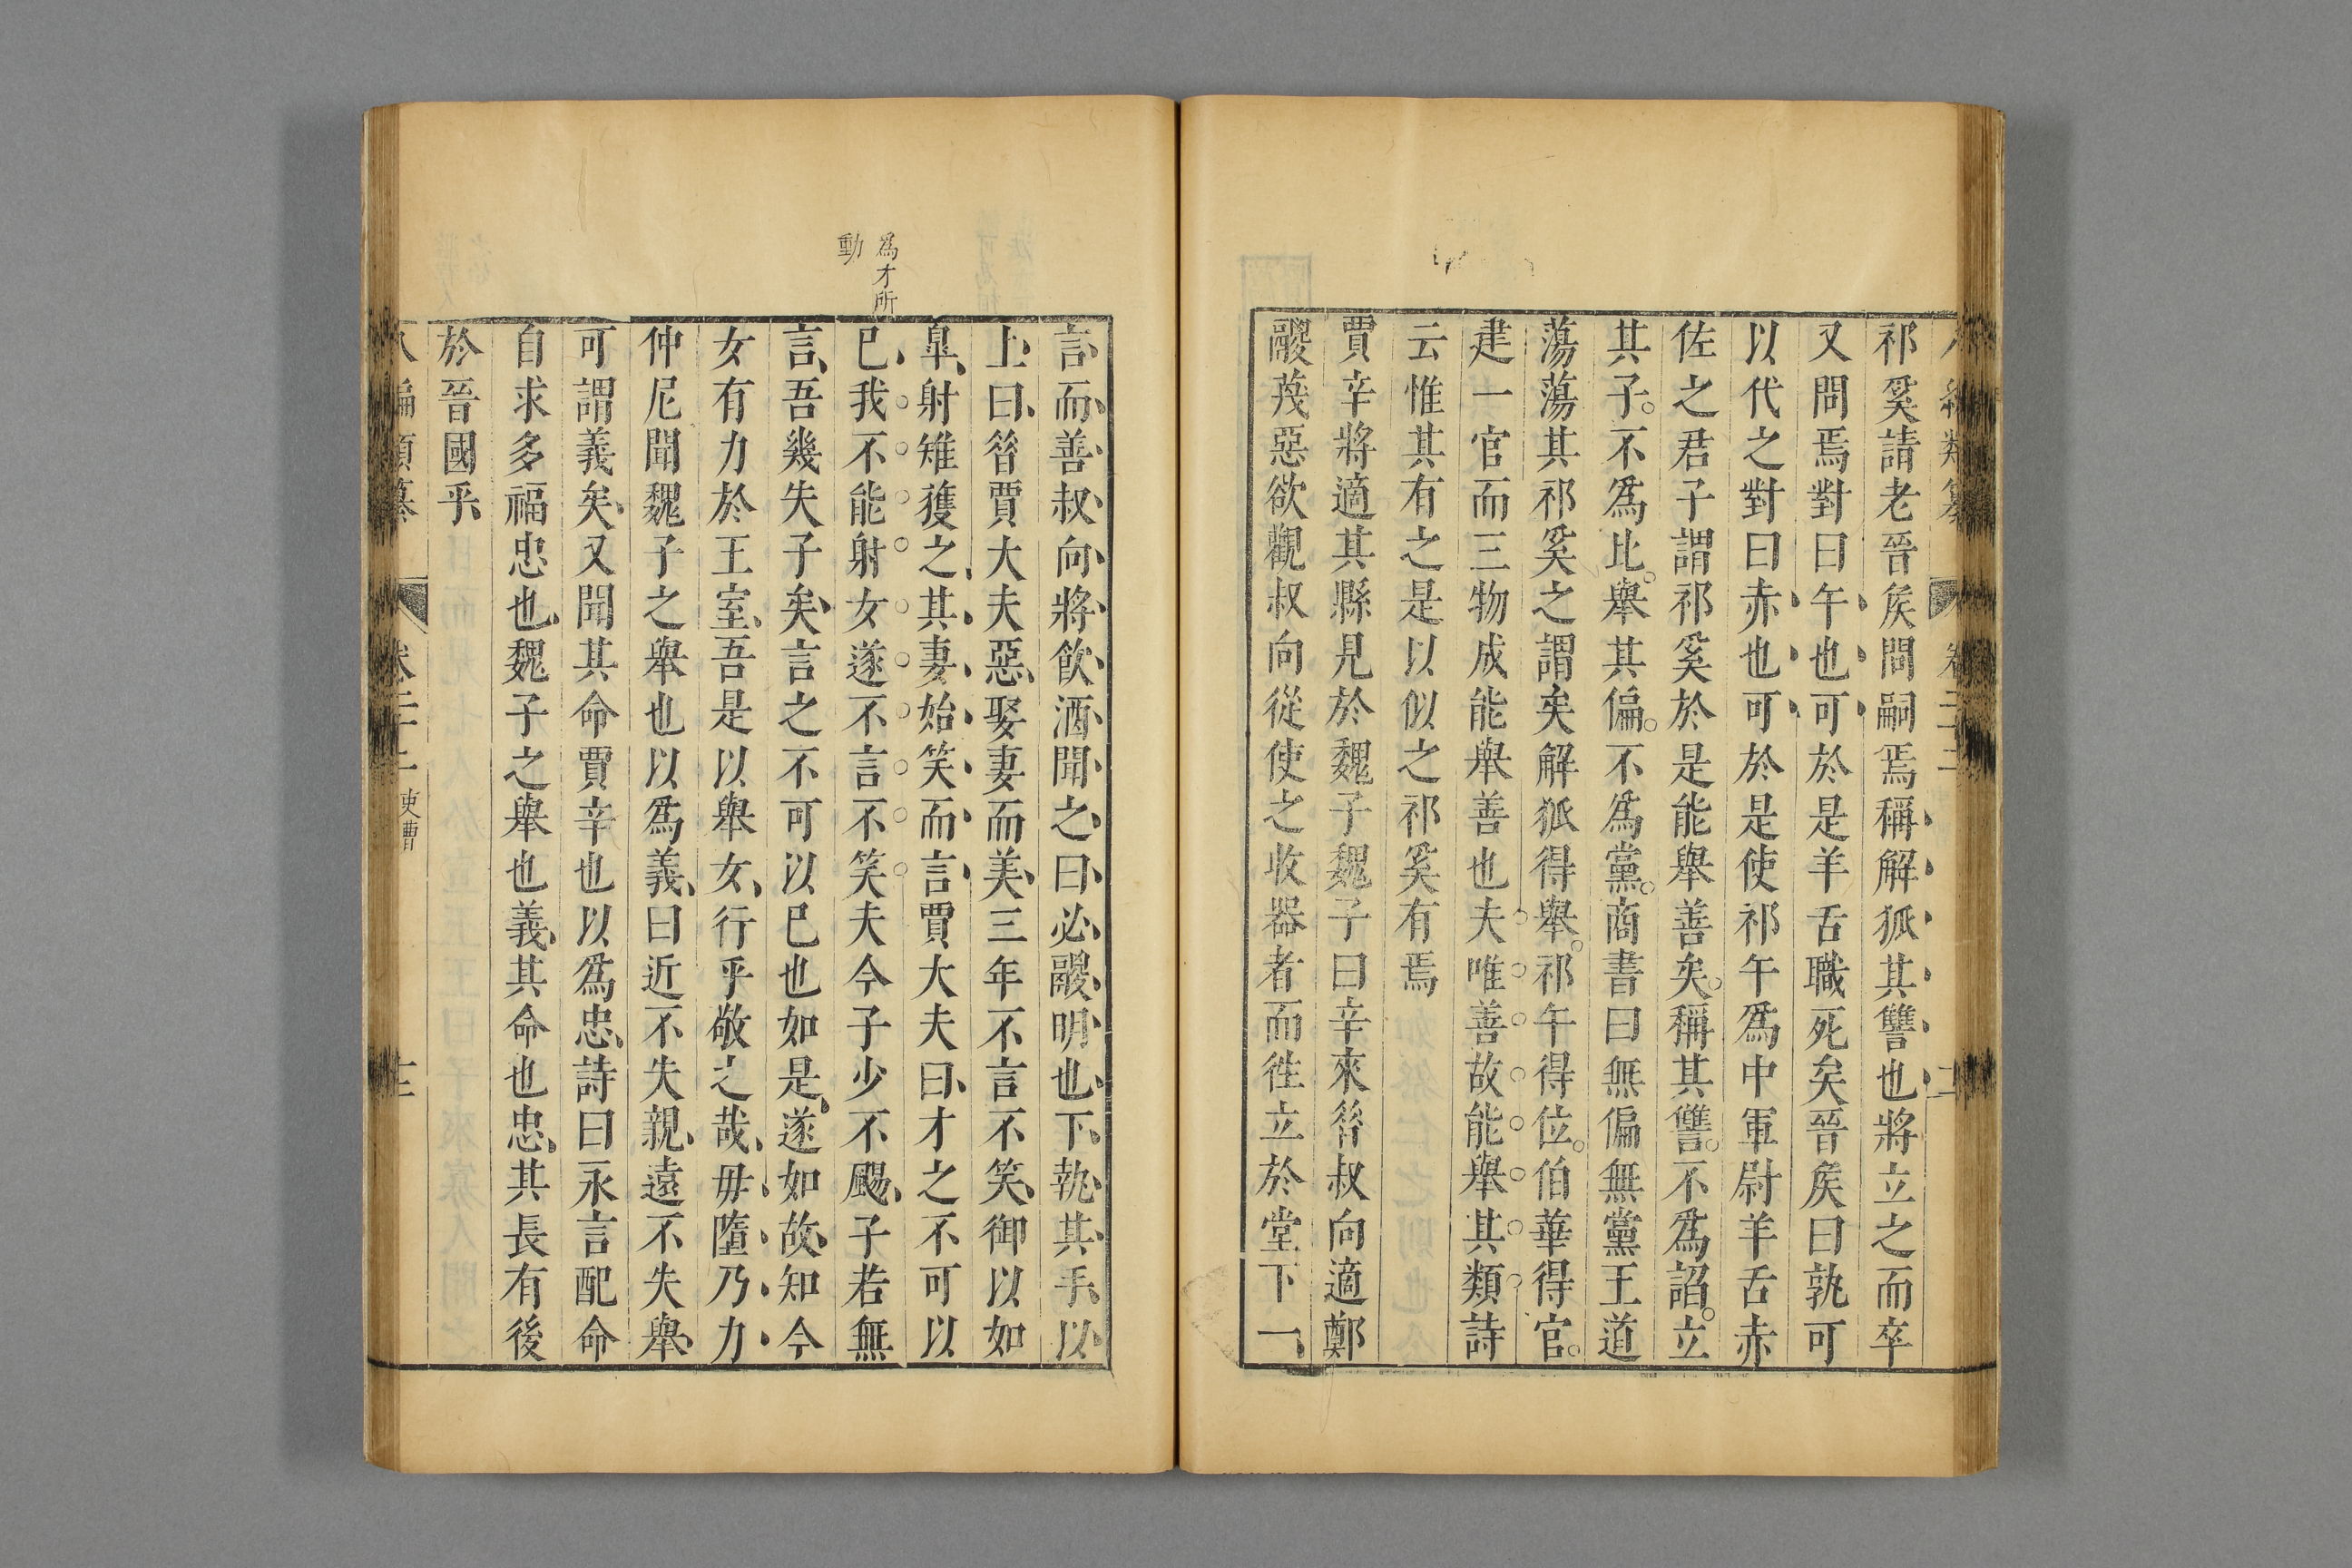 祁奚請老晉矦問嗣焉稱解狐其讐也將立之而卒
又問焉對曰午也可於是羊舌職死矣晉矦曰孰可
以代之對曰赤也可於是使祁午爲中軍尉羊舌赤
佐之君子謂祁奚於是能舉善矣稱其讐不爲諂立
其子不爲比舉其偏不爲黨商書曰無偏無黨王道
蕩蕩其祁奚之謂矣解狐得舉祁午得位伯華得官
建一官而三物成能舉善也夫唯善故能舉其類詩
云惟其有之是以似之祁奚有焉
賈辛將適其縣見於魏子魏子曰辛來昝叔向適鄭
鬷蔑惡欲觀叔向從使之收器者而徃立於堂下一
言而善叔向將飲酒聞之曰必鬷明也下執其手以
上曰昝賈大夫惡娶妻而美三年不言不笑御以如
臯射雉獲之其妻始笑而言賈大夫曰才之不可以
已我不能射女遂不言不笑夫今子少不颺子若無
言吾幾失子矣言之不可以已也如是遂如故知今
女有力於王室吾是以舉女行乎敬之哉毋墮乃力
仲尼聞魏子之舉也以爲義曰近不失親遠不失舉
可謂義矣又聞其命賈辛也以爲忠詩曰永言配命
自求多福忠也魏子之舉也義其命也忠其長有後
於晉國乎
爲才所
動
八編類纂 卷二十二 吏曹